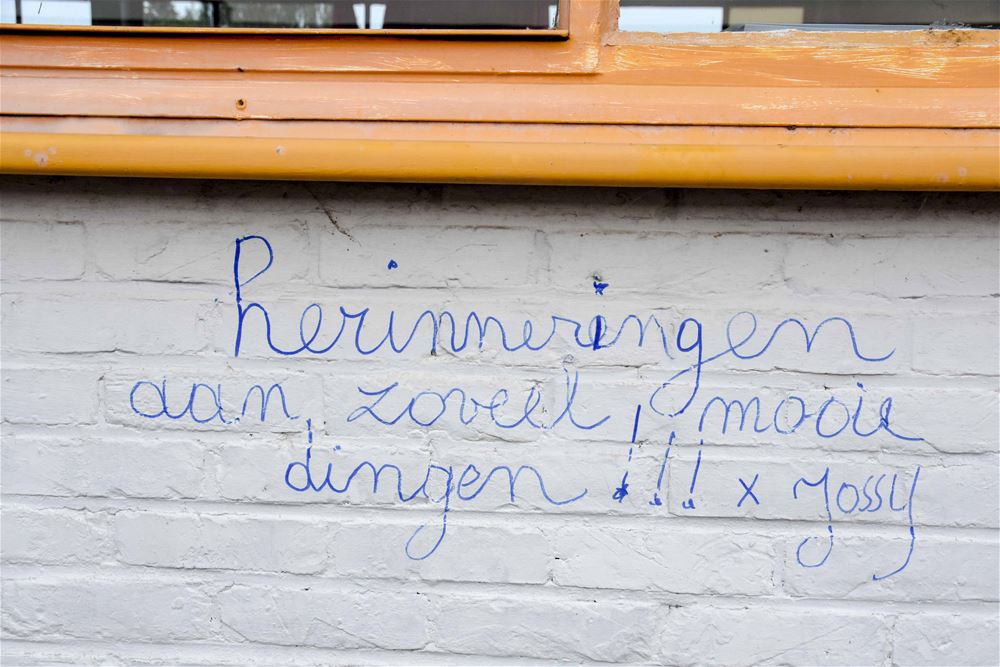 herinneringen
aan zoveel mooie
dingen !!! x Jossy